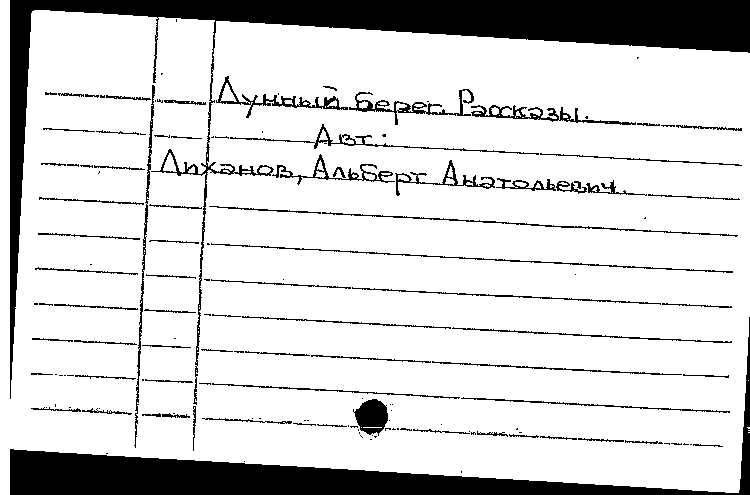 Лунный берег. Рассказы.
Авт.:
Лиханов, Альберт Анатольевич.